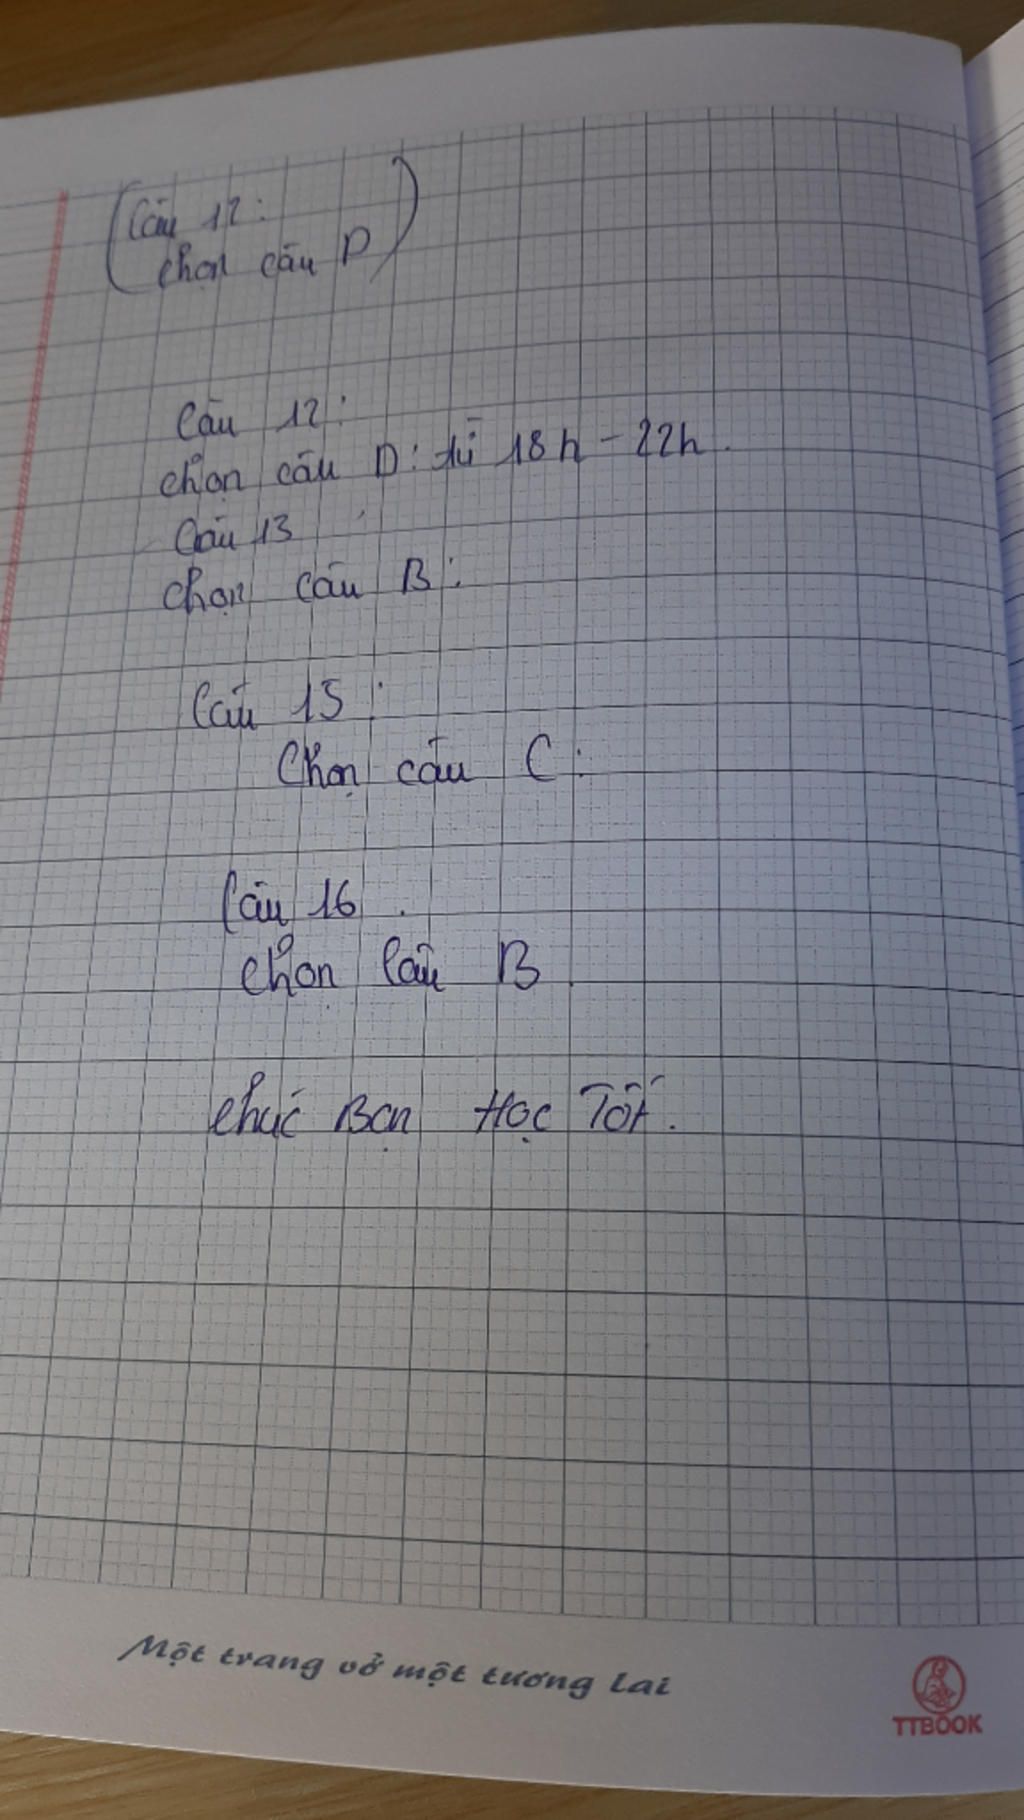 (Câu 12:
chọn câu D)
Câu 12:
chọn câu D: từ 18h - 22h.
Câu 13
chọn câu B:
Câu 15:
Chọn câu C:
Câu 16.
chọn câu B
chúc Bạn Học Tốt.
Một trang vở một tương lai
TTBOOK